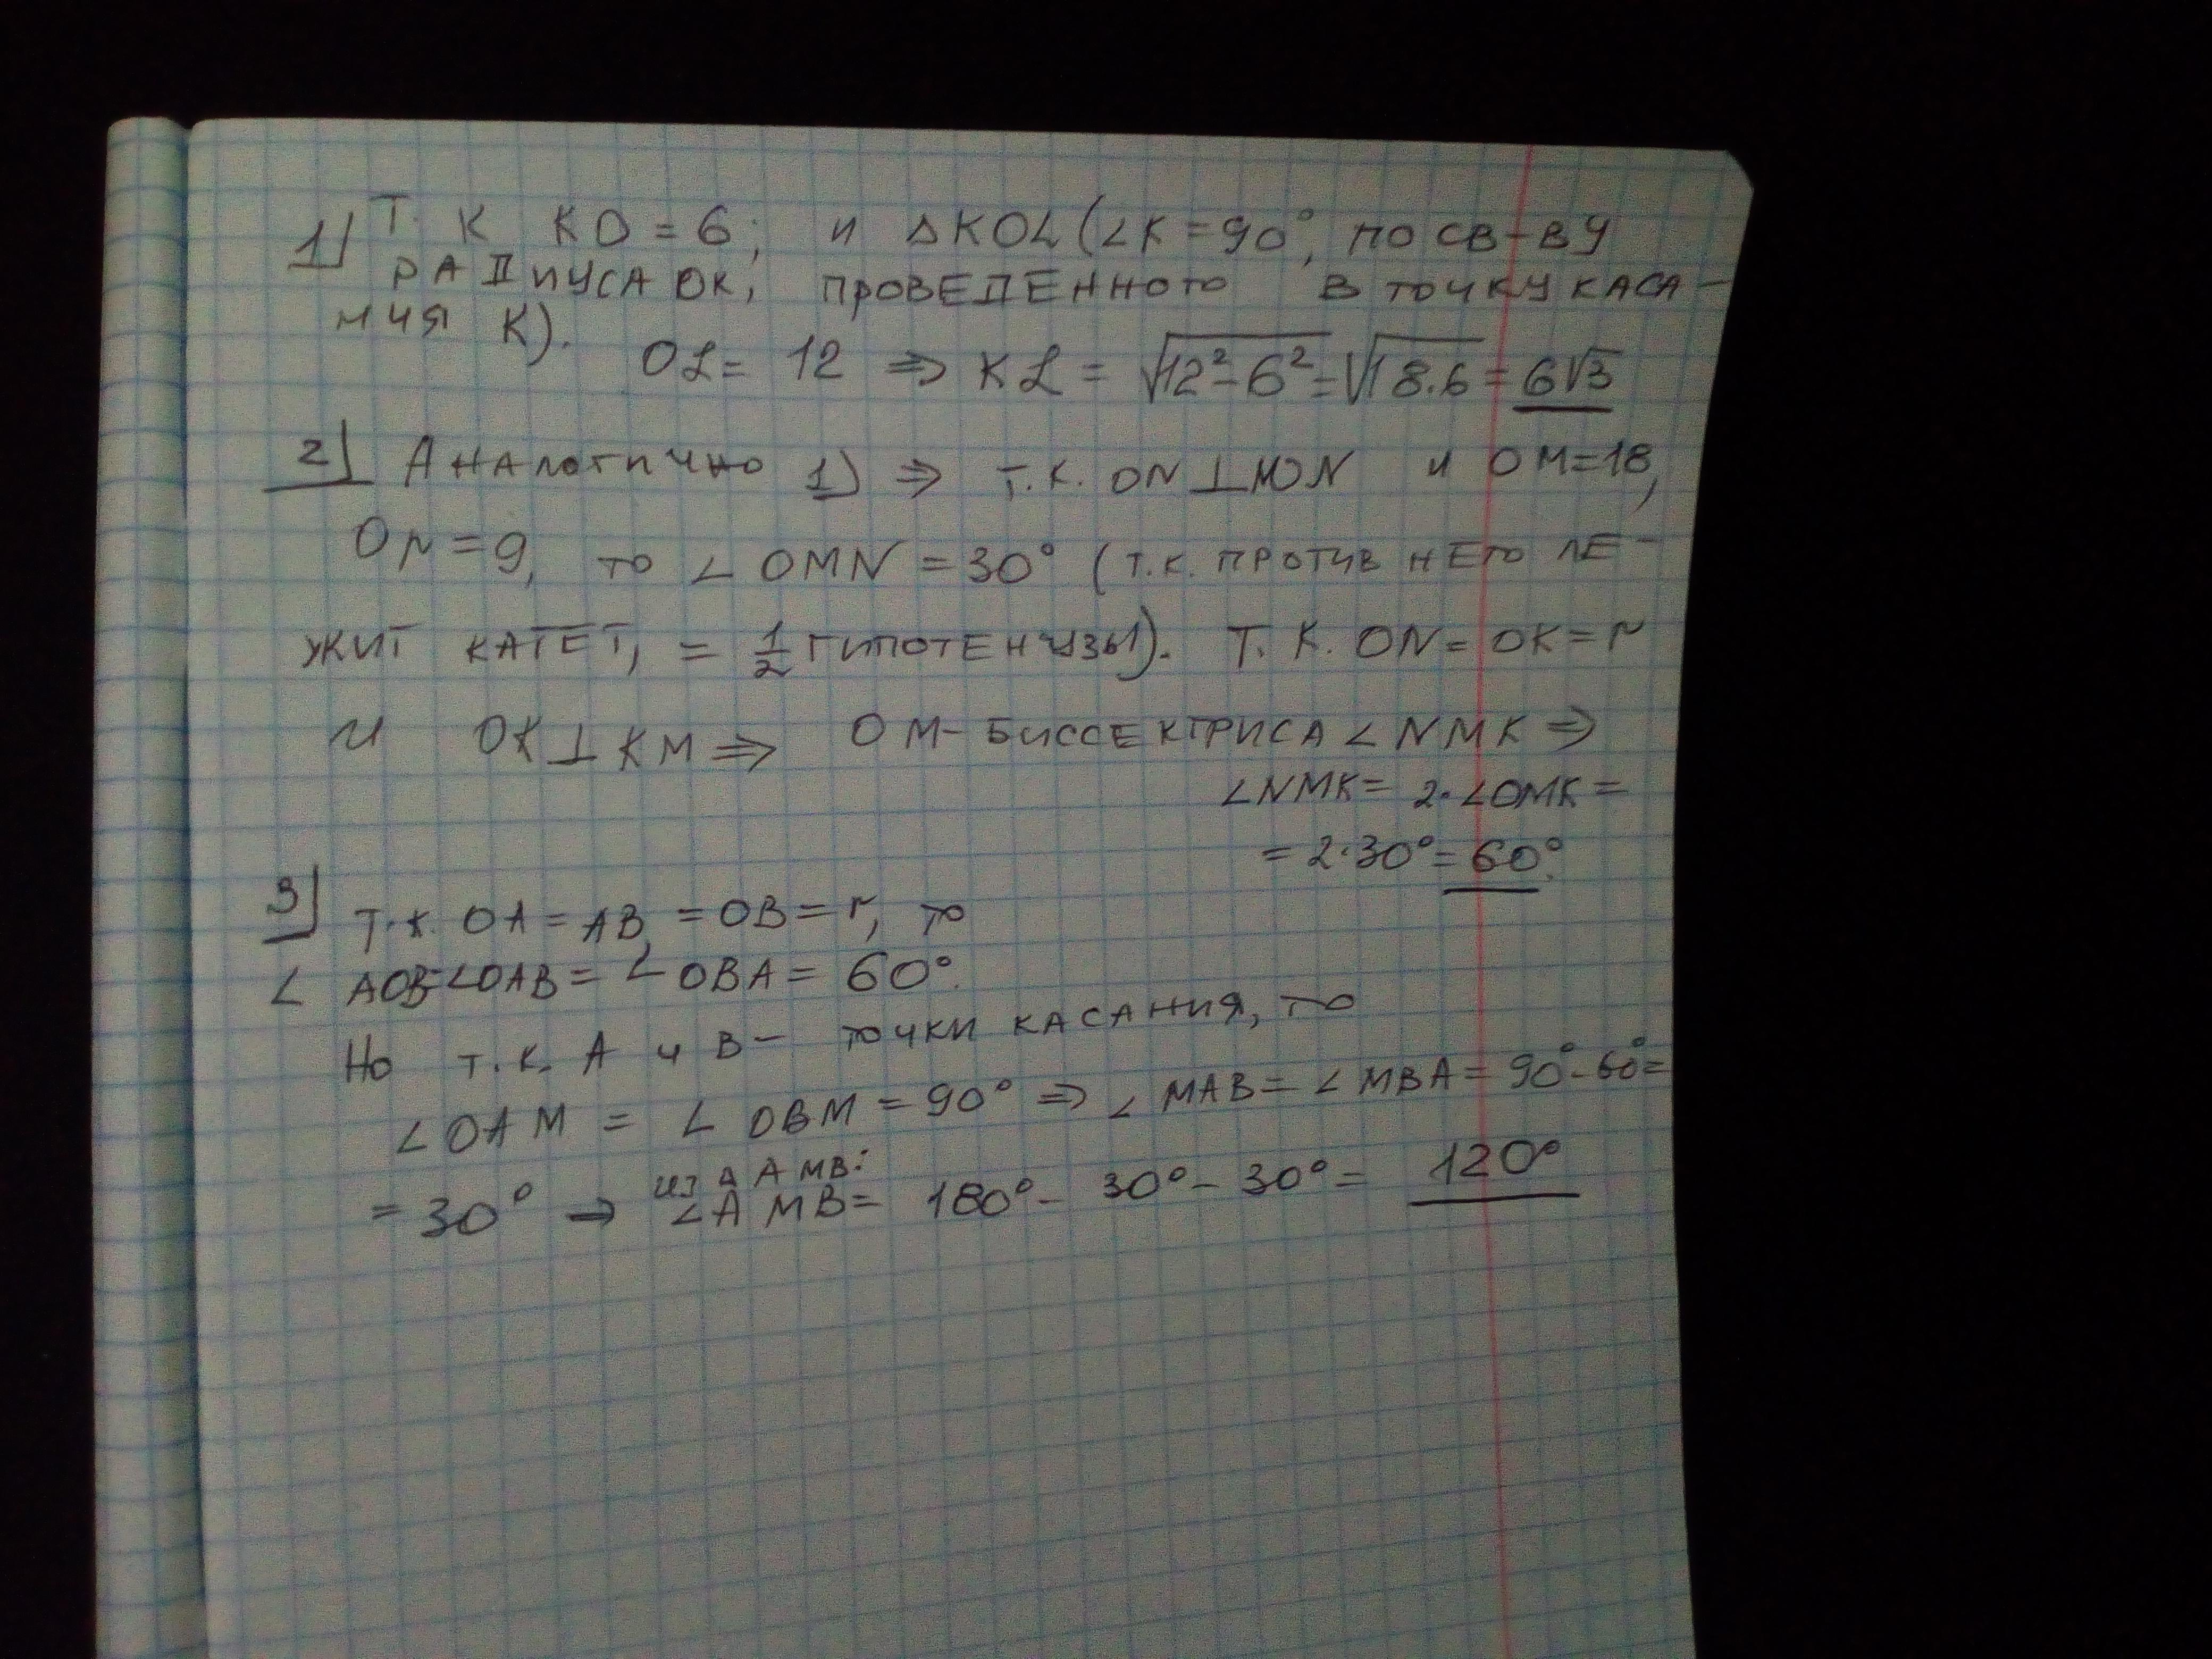 1) Т. К КО = 6; и ΔKOL (∠K = 90°, по св-ву
радиуса ОК, проведенного в точку каса-
ния К).
OL = 12 ⇒ KL = √(12² - 6²) = √(18·6) = 6√3
2) Аналогично 1) ⇒ т.к. ON ⊥ MN и OM = 18,
ON = 9, то ∠OMN = 30° (т.к. против него ле-
жит катет, = 1/2 гипотенузы). Т.К. ON = OK = r
и OK ⊥ KM ⇒ OM - биссектриса ∠NMK ⇒
∠NMK = 2·∠OMK =
= 2·30° = 60°.
3) Т.к. OA = AB = OB = r, то
∠AOB = ∠OAB = ∠OBA = 60°.
Но т.к. А и В - точки касания, то
∠OAM = ∠OBM = 90° ⇒ ∠MAB = ∠MBA = 90° - 60° =
= 30° → из Δ AMB:
∠AMB = 180° - 30° - 30° = 120°